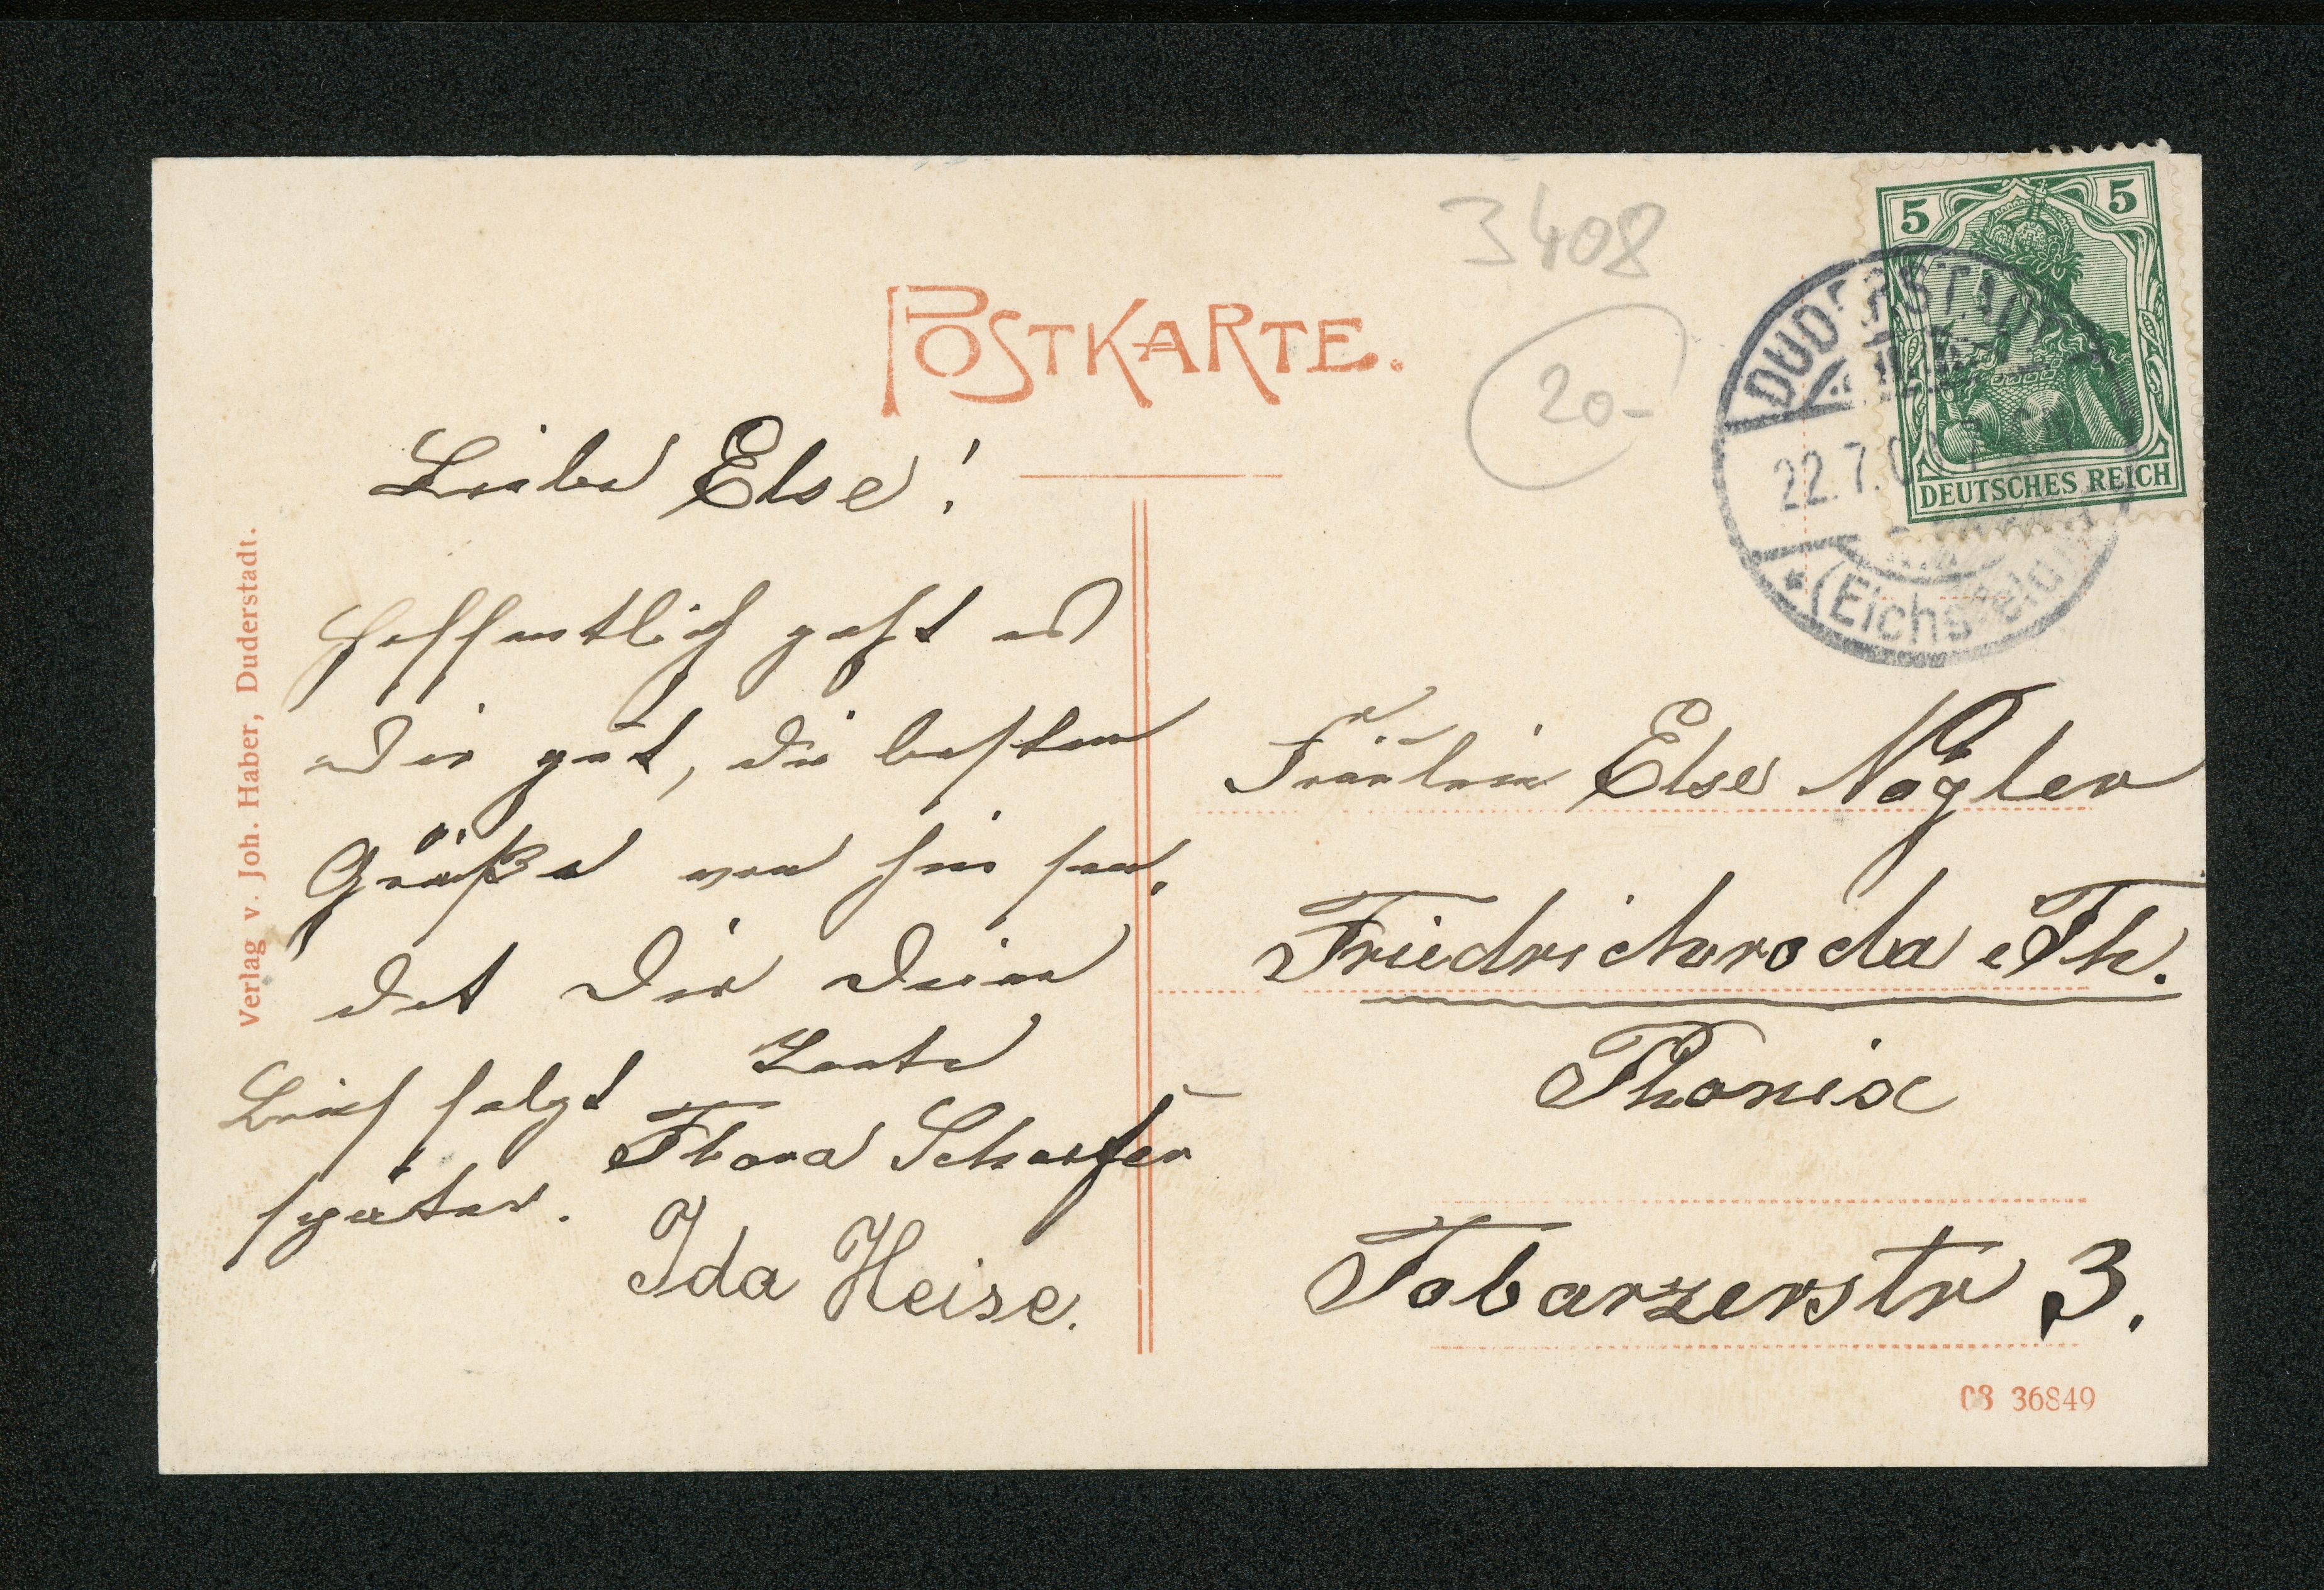 3408
POSTKARTE.
20-
5 5
DEUTSCHES REICH
DUDERSTADT
22.7.0
* (Eichsfeld)
Verlag v. Joh. Haber, Duderstadt.
Liebe Else!
Hoffentlich geht es
Dir gut, die besten
Grüße von hier sen-
det Dir Deine
Tante
Brief folgt
später.
Flora Schaefer
Ida Heise.
Fräulein Else Nögler
Friedrichroda i Th.
Phönix
Tabarzerstr 3.
08 36849